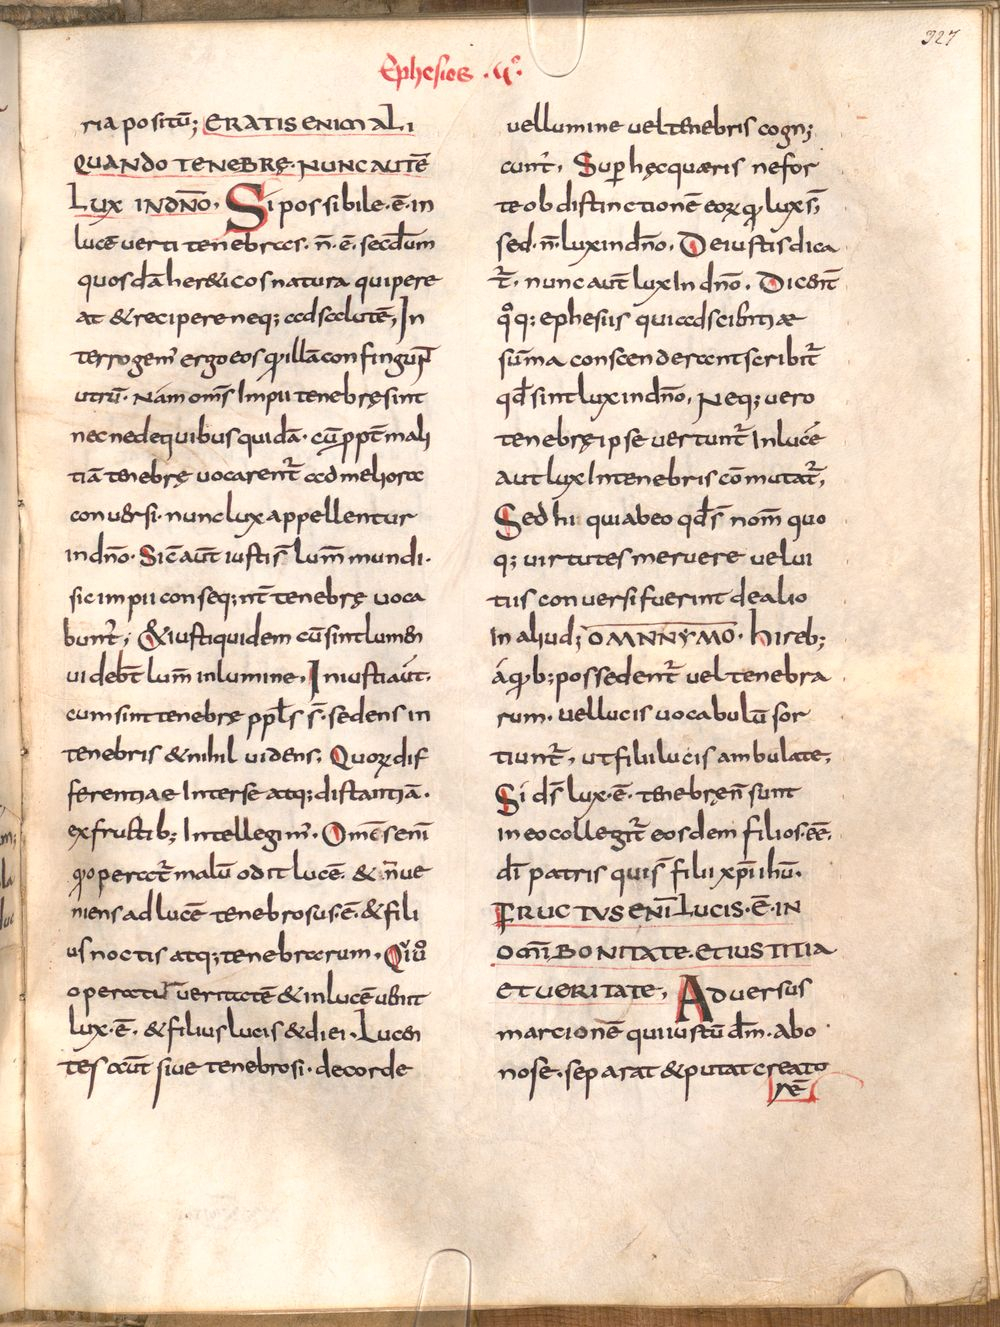 327
Ephesios .V°.
ria positū; ERATIS ENIM ALI
QUANDO TENEBRĘ. NUNC AUTĒ
LUX IN DÑO, Si possibile. ē. in
lucē verti tenebras. ñ. ē. secdum
quosdā hereticos natura qui pere
at & recipere neq; ad salutē, In
terrogem' ergo eos q illā confingunt
utrū. Nam oms Impii tenebrę sint
necne de quibus quidā. cū ppt mali
tiā tenebrę vocarent̄ ad meliora
conversi. nunc lux appellentur
in dño. Sic̄ aut̄ iustis̄ lum̄ mundi.
sic impii conseq;nt̄ tenebrę voca
bunt̄; & iusti quidem cū sint lumen
videbt̄ lum̄ in lumine, Iniusti aut̄.
cum sint tenebrę ppl's s̄. sedens in
tenebris & nihil videns, Quorꝝ dif
ferentiae Interse atq; distantiā.
ex fructib; Intellegim'. Om̄s enī
q operat̄ malū odit lucē. & n̄ ve
niens ad lucē tenebrosus ē. & fili
us noctis atq; tenebrarum, Qui v̊
operatur veritatē & in lucē venit
lux. ē. & filius lucis & diei. Lucen
tes aut̄ sive tenebrosi. de corde
vel lumine vel tenebris cogn;
cunt̄, Sup hęc quæris ne for
te ob distinctionē eorꝝ q lux s̄;
sed. ñ. lux in dño, De iustis dica
t̄. nunc aut̄ lux In dño. Dicent
q°q; ephesiis qui ad scibntiæ
sūma conscenderant scribit̄
qd̄ sint lux in dño, Neq; vero
tenebrę ipse vertunt̄ In lucē
aut lux In tenebris cōmutat̄,
Sed hi quia beo qd̄s nom̄ quo
q; virtutes meruere vel vi
tiis conversi fuerint de alio
in aliud; OMNNYMO. hi reb;
a q b; possedent̄ vel tenebra
rum. vel lucis vocabulū sor
tiunt̄, ut filii lucis ambulate,
Si ds̄ lux. ē. tenebrę n̄ sunt
in eo collegit̄ eosdem filios. ee.
dī patris qui s̄ filii xpī ihū.
FRUCTUS ENĪ LUCIS. Ē. IN
OMĪ BONITATE. ET IUSTITIA
ET UERITATE, Adversus
marcionē qui iustū dm̄. abo
no se. separat & putat creato
rē